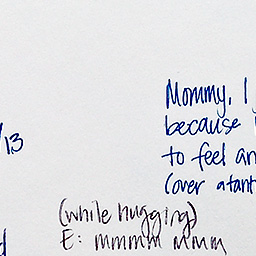 Mommy, I
because
/13
to feel an
(over a tant
(while hugging)
E: mmmm mmmm